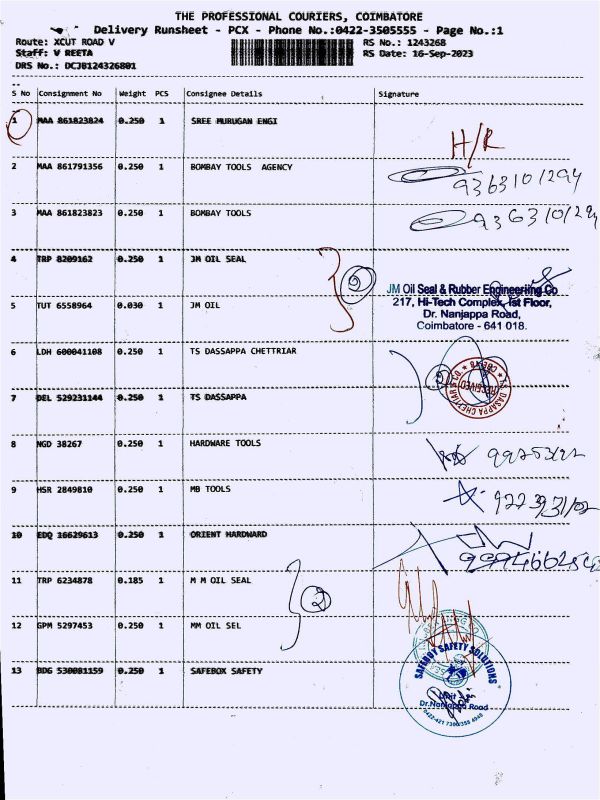 THE PROFESSIONAL COURIERS, COIMBATORE
Delivery Runsheet - PCX - Phone No.:0422-3505555 - Page No.:1
Route: XCUT ROAD V RS No.: 1243268
Staff: V REETA RS Date: 16-Sep-2023
DRS No.: DCJB124326801
S No Consignment No Weight PCS Consignee Details Signature
1 MAA 861823824 0.250 1 SREE MURUGAN ENGI
H/R
2 MAA 861791356 0.250 1 BOMBAY TOOLS AGENCY
9363101294
3 MAA 861823823 0.250 1 BOMBAY TOOLS
4 TRP 8209162 0.250 1 JM OIL SEAL
JM Oil Seal & Rubber Engineeriing Co
217, Hi-Tech Complex, Ist Floor,
5 TUT 6558964 0.030 1 JM OIL
Dr. Nanjappa Road,
Coimbatore - 641 018.
6 LDH 600041108 0.250 1 TS DASSAPPA CHETTRIAR
RECEIVED
7 DEL 529231144 0.250 1 TS DASSAPPA
8 NGD 38267 0.250 1 HARDWARE TOOLS
9 HSR 2849810 0.250 1 MB TOOLS
10 EDQ 16629613 0.250 1 ORIENT HARDWARD
11 TRP 6234878 0.185 1 M M OIL SEAL
2
12 GPM 5297453 0.250 1 MM OIL SEL
13 BDG 530081159 0.250 1 SAFEBOX SAFETY
SAFEBOX SAFETY SOLUTIONS
Dr.Nanjappa Road